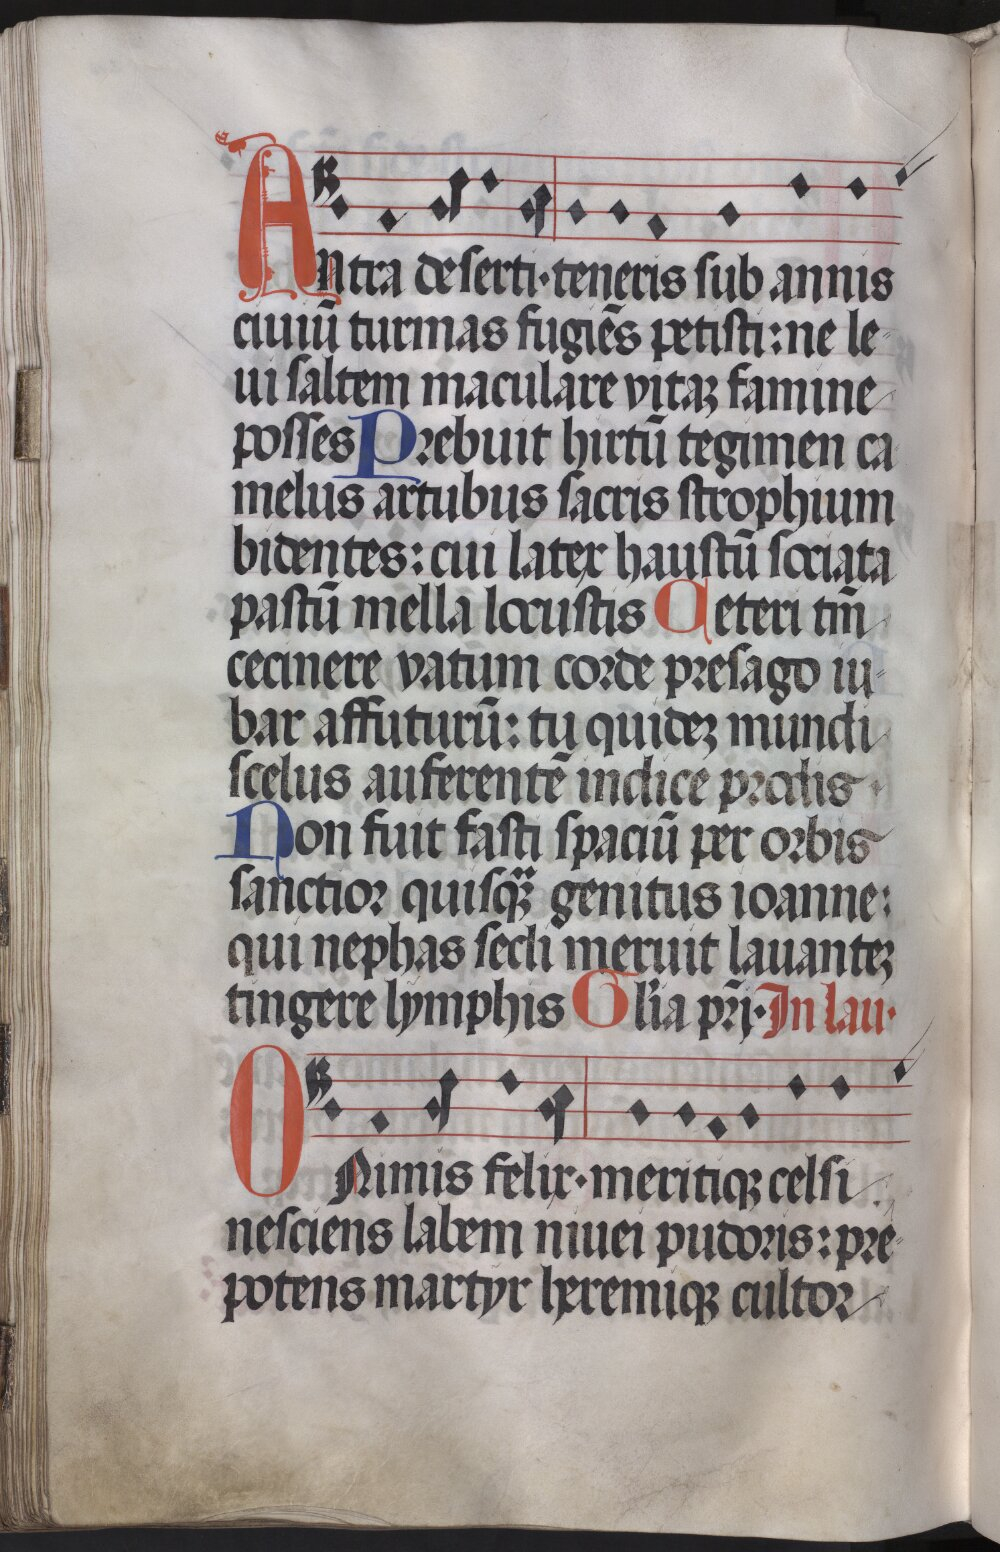 Antra deserti·teneris sub annis
ciuiū turmas fugiēs petisti: ne le-
ui saltem maculare vitaꝫ famine
posses Prebuit hirtū tegimen ca
melus artubus sacris strophium
bidentes: cui latex haustū sociata
pastū mella locustis Ceteri tm̄
cecinere vatum corde presago iu-
bar affuturū: tu quideꝫ mundi
scelus auferentē indice prodis·
Non fuit fasti spaciū per orbis
sanctior quisqꝫ̄ genitus ioanne:
qui nephas secli meruit lauanteꝫ
tingere lymphis Glīa pr̄j·In lau·
O Nimis felix·meritiqꝫ celsi
nesciens labem niuei pudoris: pre-
potens martyr heremiqꝫ cultor